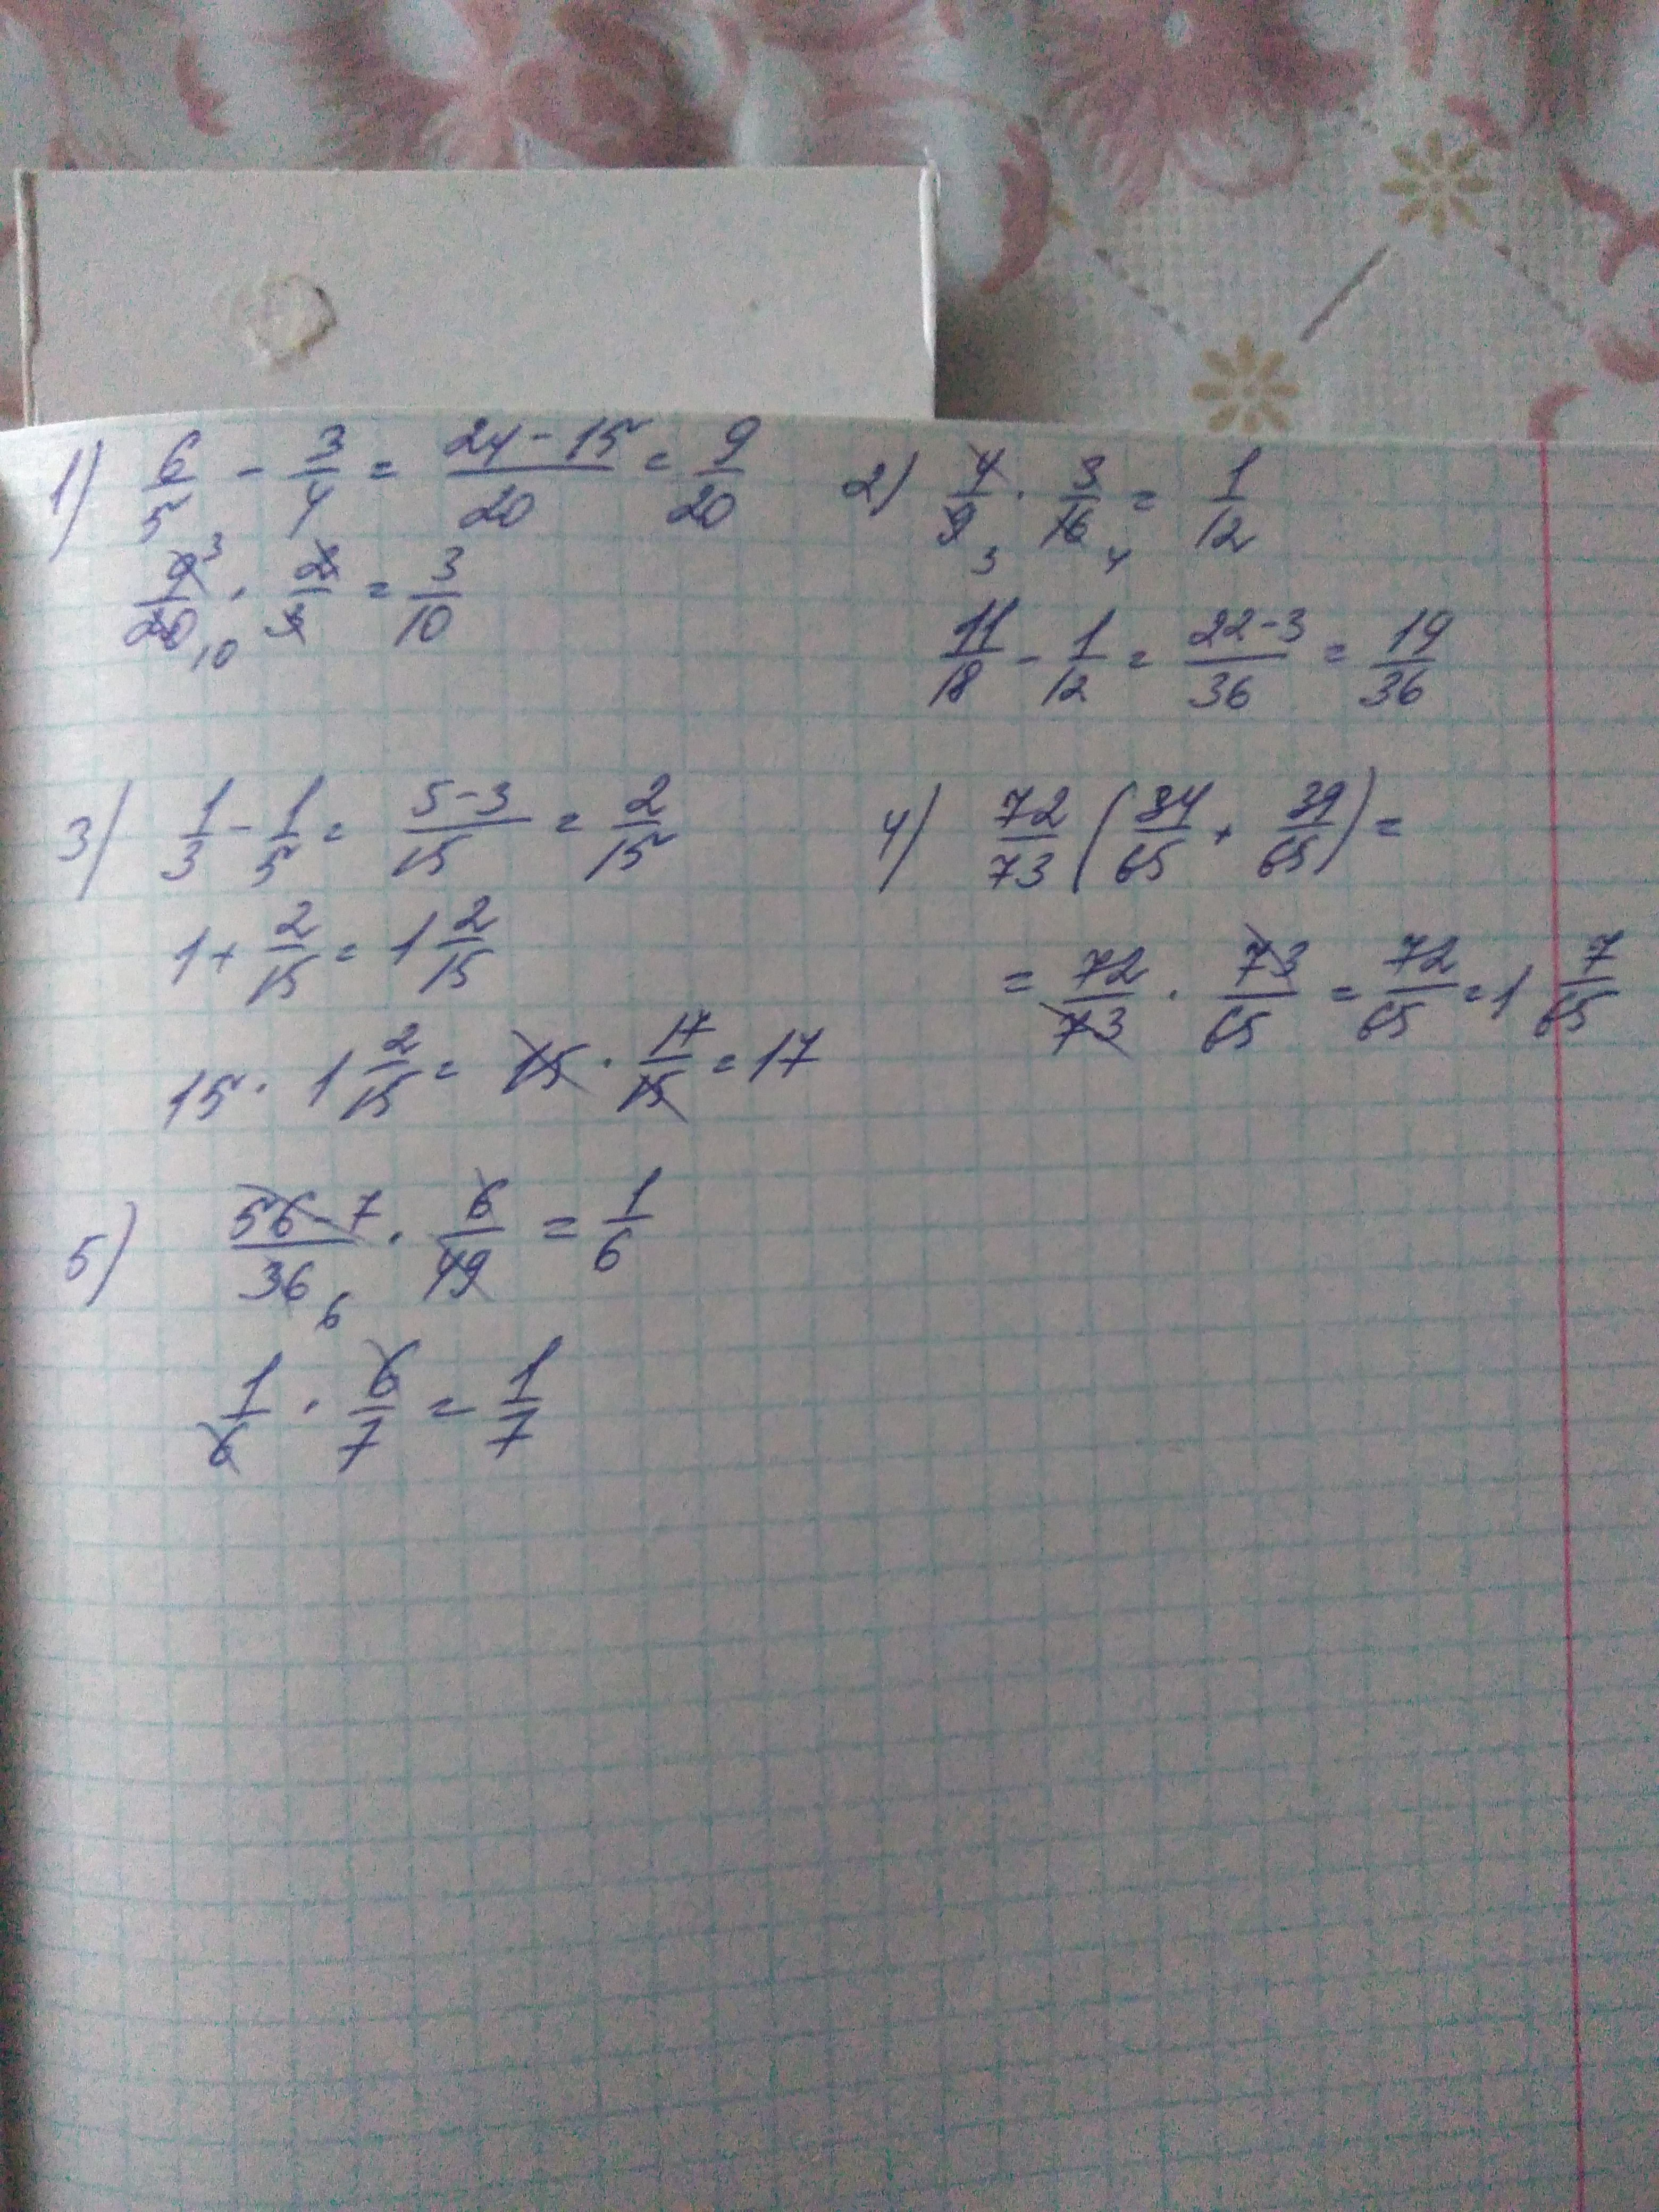 1) 6/5 - 3/4 = (24-15)/20 = 9/20
9/20 · 2/3 = 3/10
3
10
2) 4/9 · 3/16 = 1/12
3 4
11/18 - 1/12 = (22-3)/36 = 19/36
3) 1/3 - 1/5 = (5-3)/15 = 2/15
1 + 2/15 = 1 2/15
15 · 1 2/15 = 15 · 17/15 = 17
4) 72/73 (34/65 + 39/65) =
= 72/73 · 73/65 = 72/65 = 1 7/65
5) (56-7)/36 · 6/49 = 1/6
6
1/6 · 6/7 = 1/7